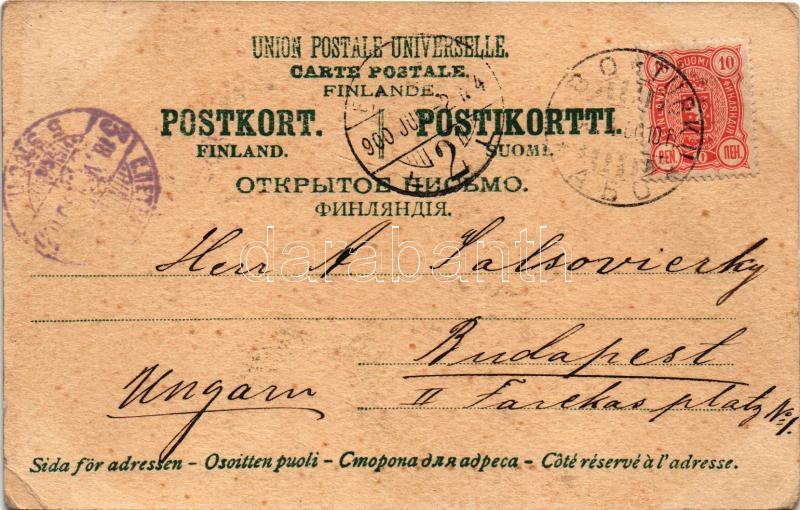 UNION POSTALE UNIVERSELLE.
CARTE POSTALE.
FINLANDE.
POSTKORT. POSTIKORTTI.
FINLAND. SUOMI.
ОТКРЫТОЕ ПИСЬМО.
ФИНЛЯНДІЯ.
10
SUOMI
PEN. ПЕН.
ÅBO
900 JUN
2
Herr A Salsovierky
Budapest
Ungarn II Farkas platz No 1.
darabanth
Sida för adressen – Osoitten puoli – Сторона для адреса – Côté réservé à l'adresse.